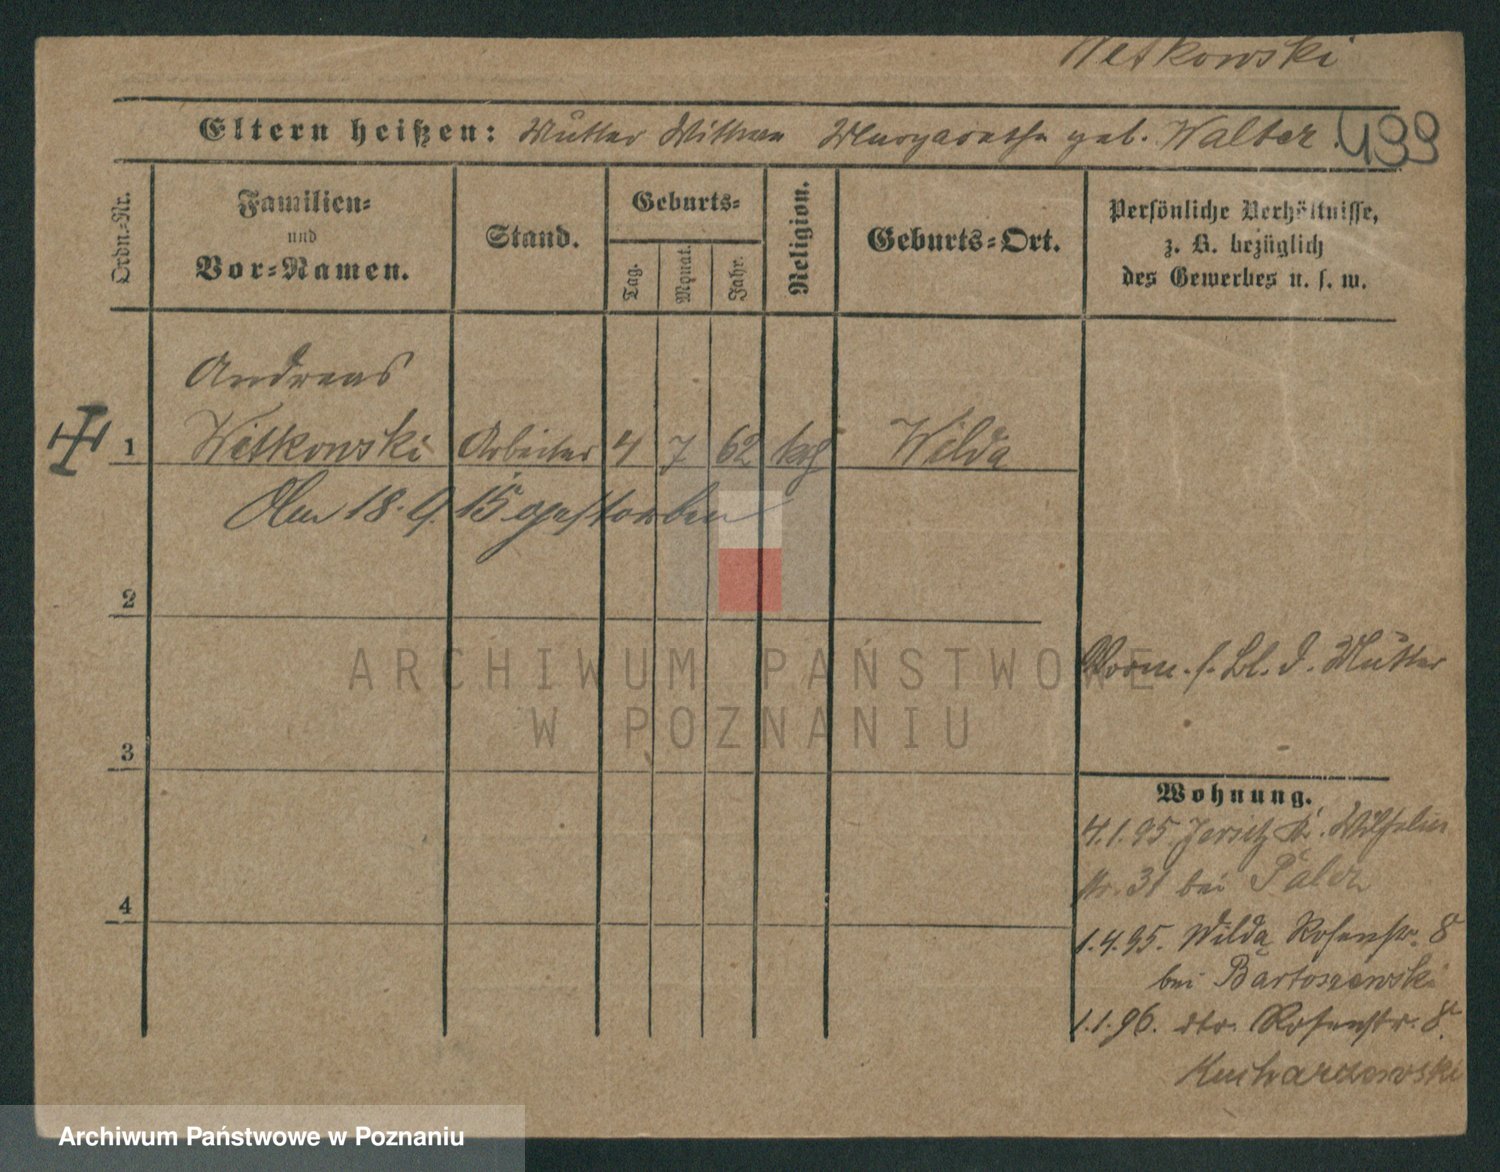 Witkowski
Eltern heißen: Mutter Wittwe Margarethe geb. Walter. 499
Ordn.-Nr.
Familien-
und
Vor-Namen.
Stand.
Geburts-
Tag.
Monat.
Jahr.
Religion.
Geburts-Ort.
Persönliche Verhältnisse,
z. B. bezüglich
des Gewerbes u. s. w.
Andreas
1 Witkowski Arbeiter 4 7 62 kth Wilda
Am 18. 9. 15 gestorben
2
Vorm. s. Bl. d. Mutter
ARCHIWUM PAŃSTWOWE
W POZNANIU
3
Wohnung.
4.1.95. Jersitz Kr. Wilhelm
str. 31 bei
4
1.4.95. Wilda Rosenstr. 8
bei Bartoszewski
1.1.96. dto. Rosenstr. 8.
Kucharzewski
Archiwum Państwowe w Poznaniu